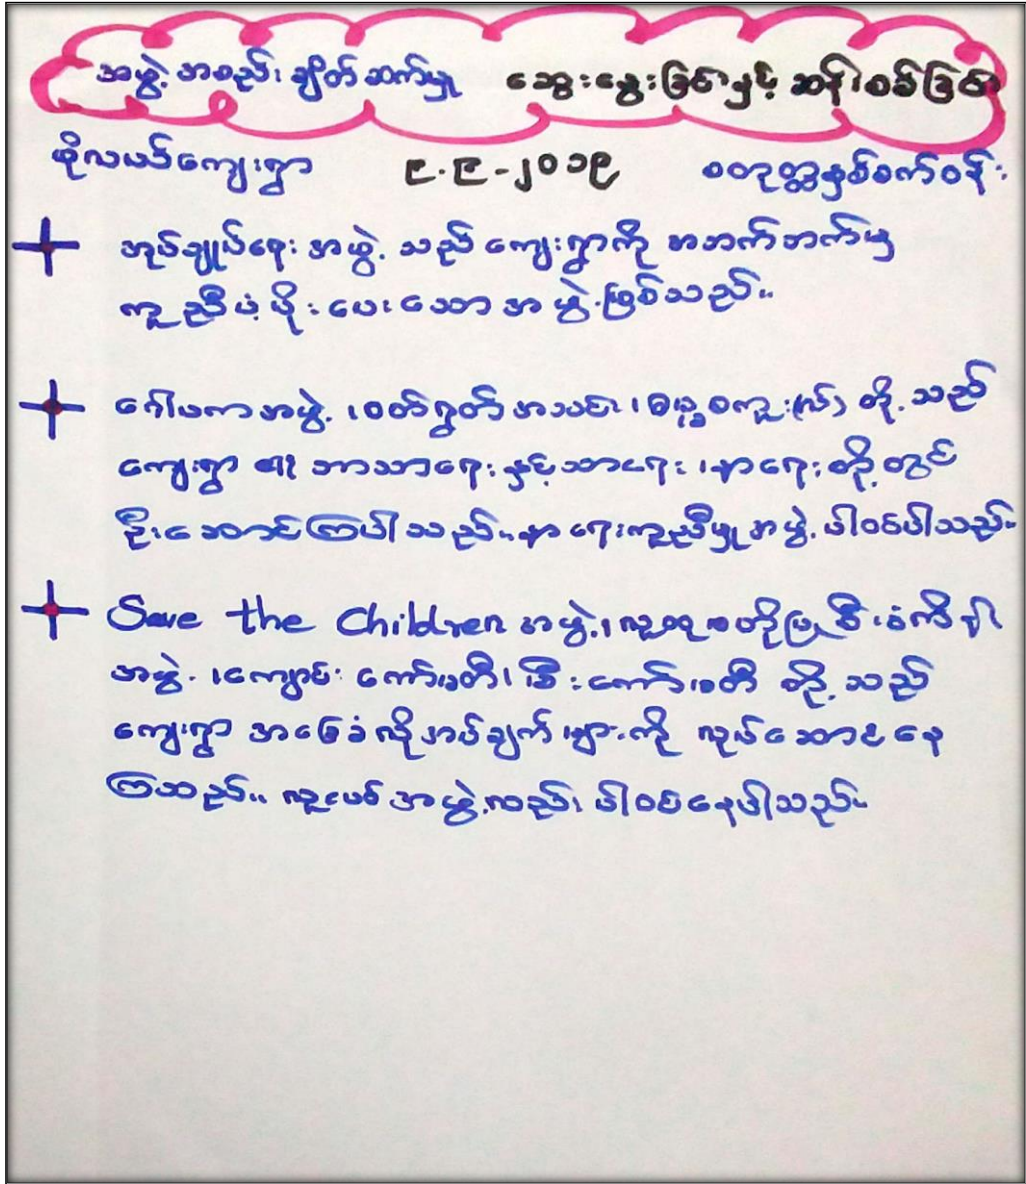 အဖွဲ့အစည်းချိတ်ဆက်မှု ဆွေးနွေးခြင်းနှင့် ဆန်းစစ်ခြင်း
ဖိုလယ်ကျေးရွာ ၉.၉-၂၀၁၉ စတုတ္ထနှစ်စက်ဝန်း
အုပ်ချုပ်ရေး အဖွဲ့ သည် ကျေးရွာကို အဘက်ဘက်မှ
ကူညီပံ့ပိုး ပေးသော အဖွဲ့ဖြစ်သည်။
ဂေါပကအဖွဲ့၊ ဝတ်ရွတ်အသင်း၊ တို့သည်
ကျေးရွာ ၏ ဘာသာရေး နှင့် သာရေး ၊နာရေး တို့တွင်
ဦးဆောင်ကြပါသည်။ နာရေးကူညီမှုအဖွဲ့ ပါဝင်ပါသည်။
Save the Children အဖွဲ့၊ လူထုဗဟိုပြု စီးပံကိန်း
အဖွဲ့ ၊ကျောင်း ကော်မတီ၊ မီးကော်မတီ တို့သည်
ကျေးရွာ အခြေခံလိုအပ်ချက်များကို လုပ်ဆောင်နေ
ကြသည်။ လူငယ်အဖွဲ့လည်း ပါဝင်နေပါသည်။